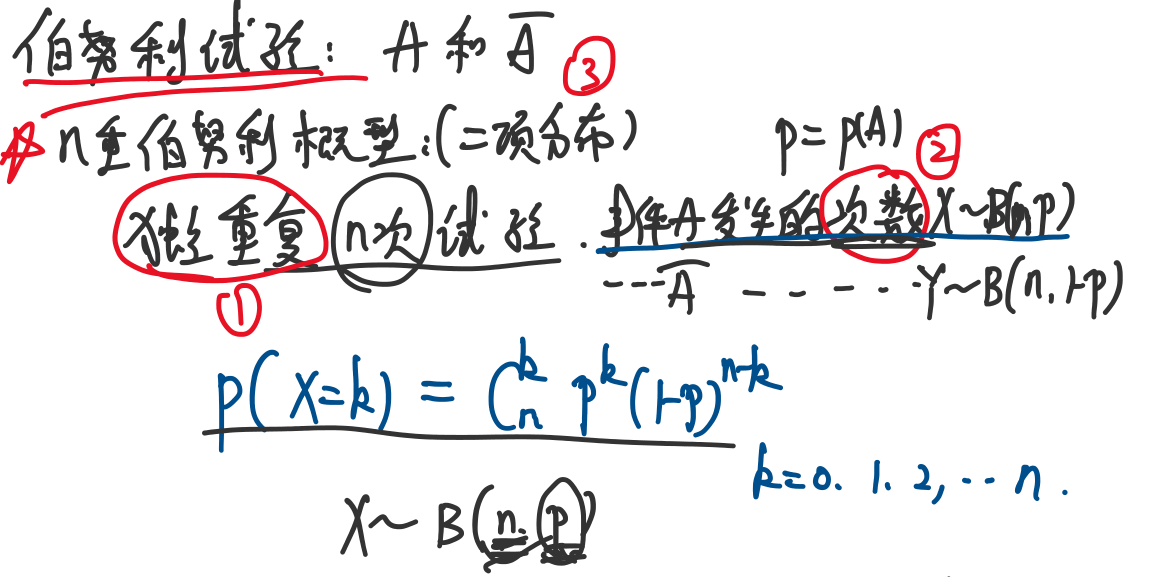 伯努利试验: A 和 A̅
③
☆ n重伯努利概型:(二项分布)
p = p(A)
②
独立重复 n次 试验. 事件A发生的次数 X~B(n,p)
①
---A̅ - - - - - Y~B(n, 1-p)
p(X=k) = Cₙᵏ pᵏ(1-p)ⁿ⁻ᵏ
k=0. 1. 2, ... n.
X ~ B(n. p)